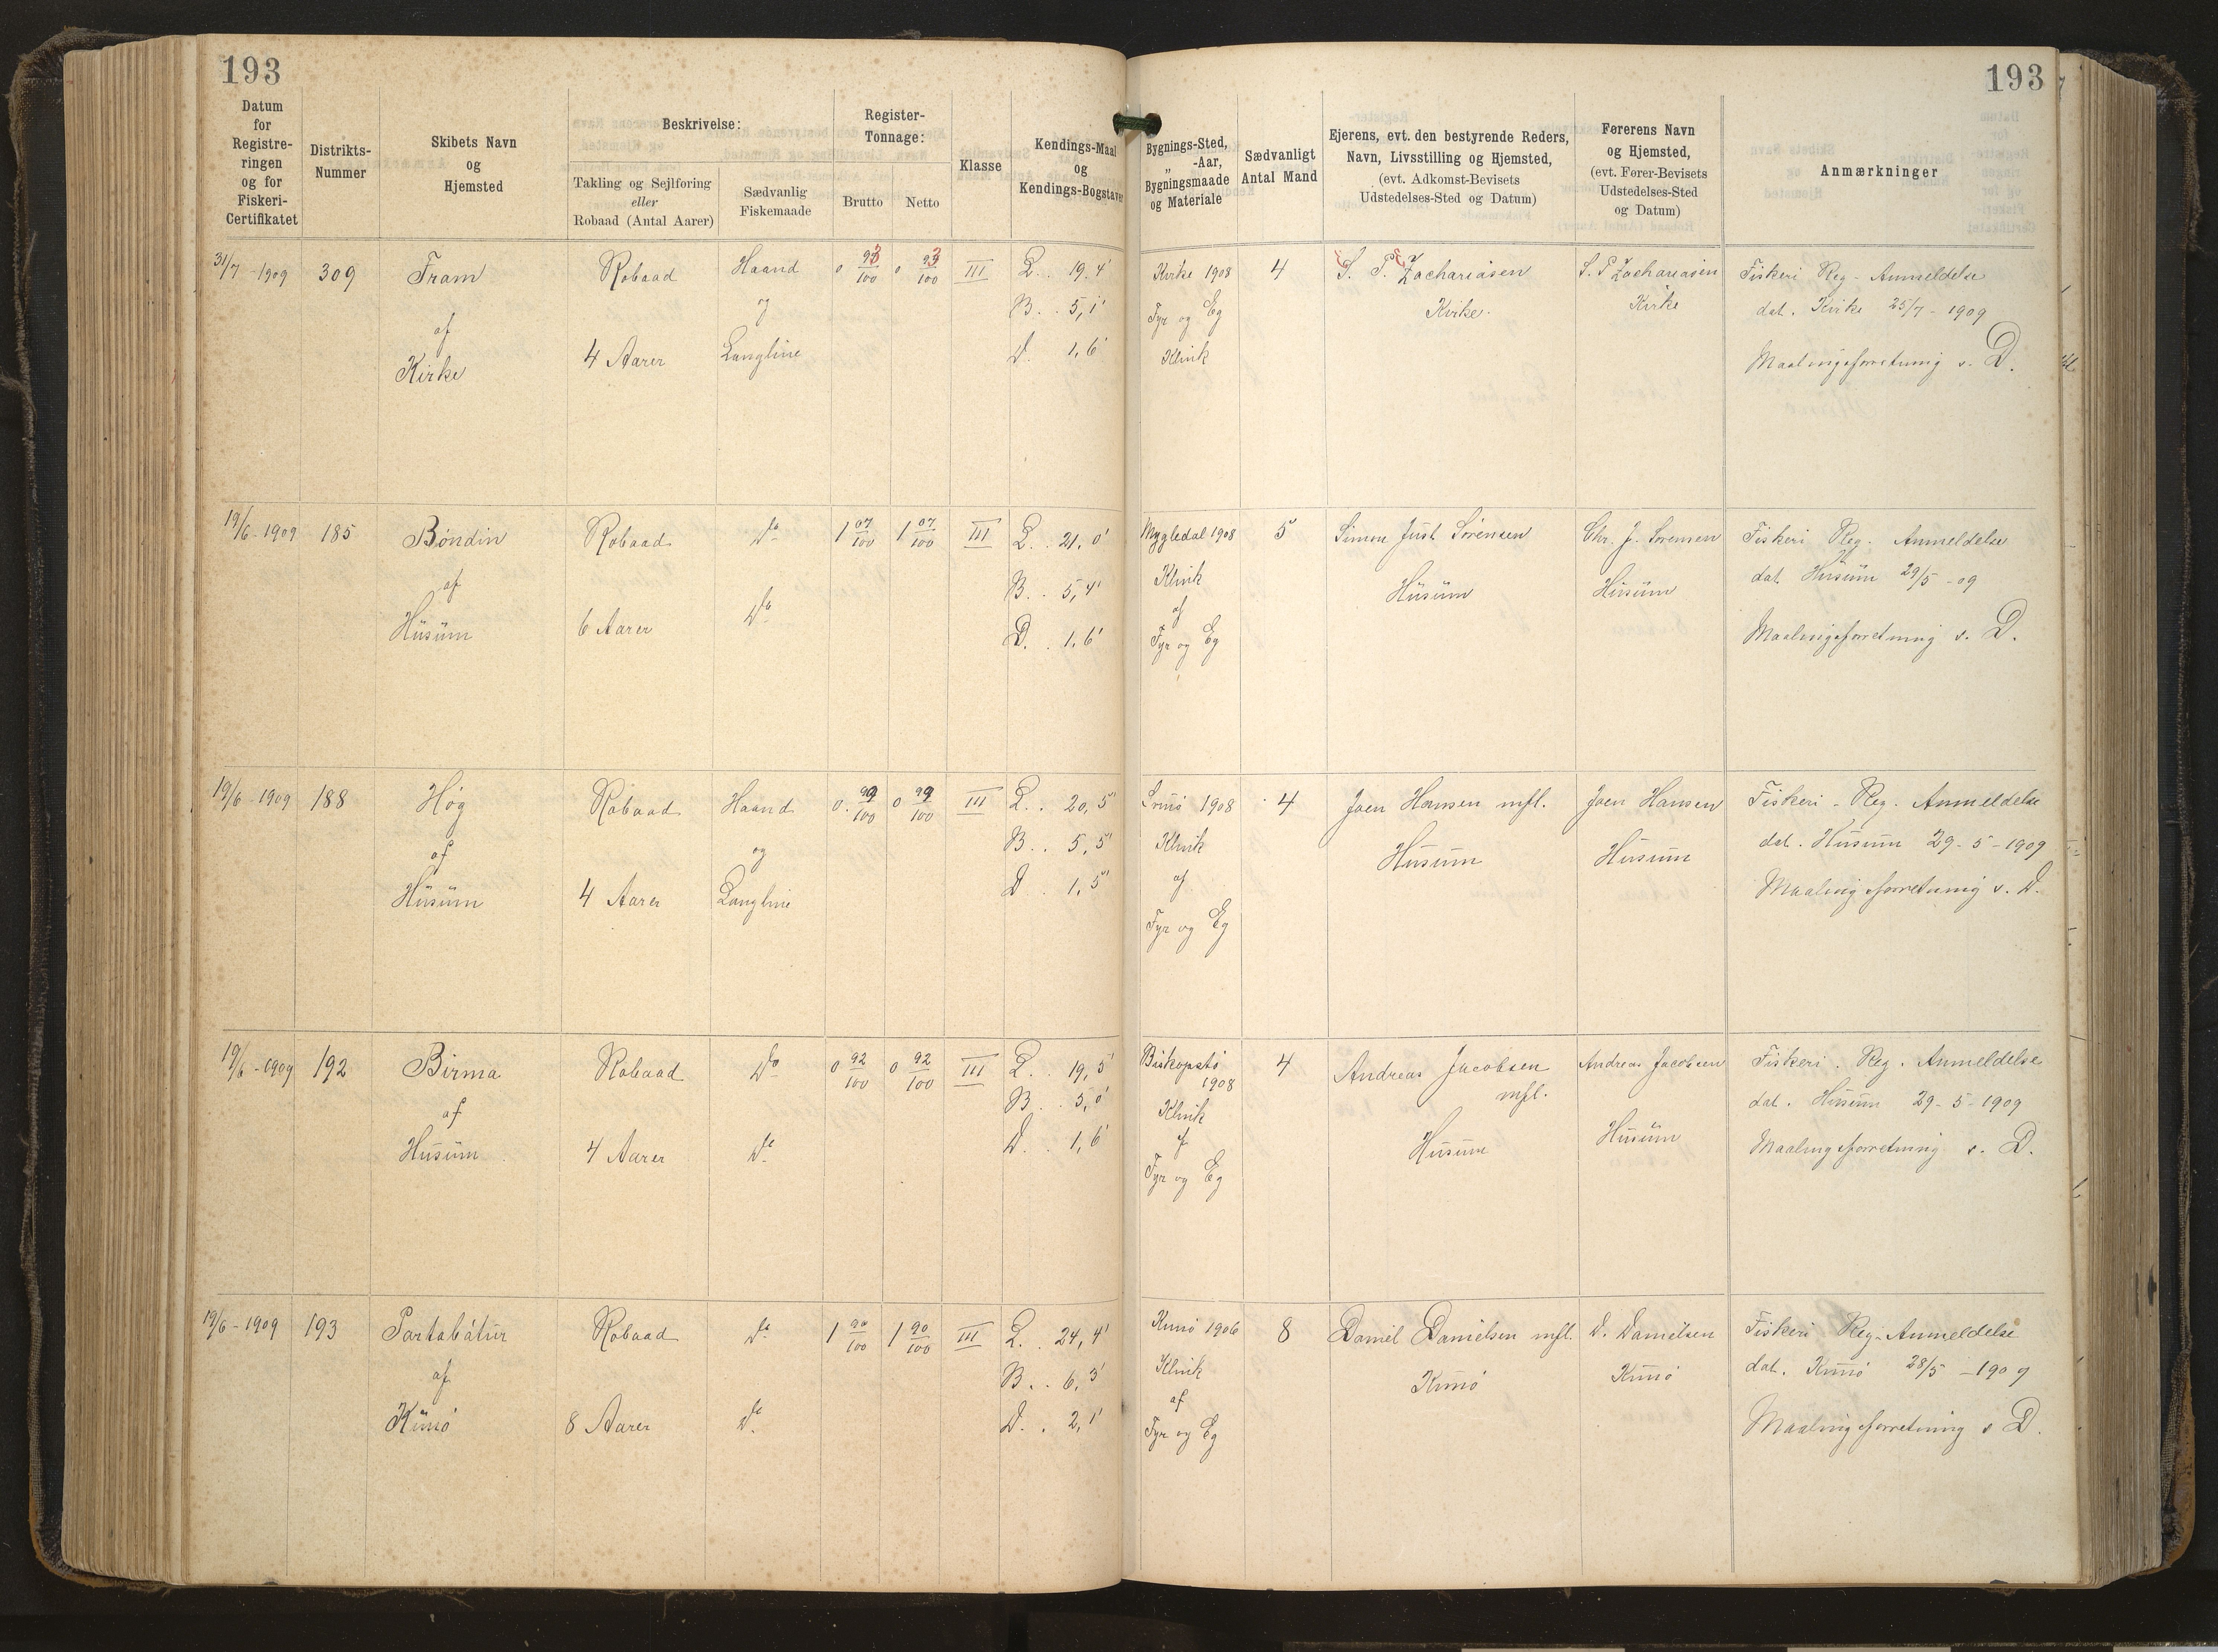 193
193
Datum for Registreringen og for Fiskeri-Certifikatet
Distrikts-Nummer
Skibets Navn og Hjemsted
Beskrivelse:
Takling og Sejlføring eller Robaad (Antal Aarer)
Sædvanlig Fiskemaade
Register-Tonnage:
Brutto
Netto
Klasse
Kendings-Maal og Kendings-Bogstaver
Bygnings-Sted, „ -Aar, Bygningsmaade og Materiale
Sædvanligt Antal Mand
Ejerens, evt. den bestyrende Reders, Navn, Livsstilling og Hjemsted, (evt. Adkomst-Bevisets Udstedelses-Sted og Datum)
Førerens Navn og Hjemsted, (evt. Fører-Bevisets Udstedelses-Sted og Datum)
Anmærkninger
31/7 - 1909 309 Fram Robaad Haand 0 93/100 0 93/100 III L.. 19.4' Kirke 1908 4 S. P. Zachariasen S. P Zachariasen Fiskeri Reg - Anmeldelse
og B.. 5,1' Fyr og Eg Kirke. Kirke dat. Kirke 25/7 - 1909
af 4 Aarer Langline D. 1,6' Klink Maalingsforretning v. D.
Kirke
19/6 - 1909 185 Bóndin Robaad Do 1 07/100 1 07/100 III L.. 21,0' Mygledal 1908 5 Simon Just Sörensen Chr. J. Sörensen Fiskeri Reg. Anmeldelse
af B.. 5,4' Klink Húsúm Húsúm dat. Húsúm 29/5 - 09
Húsúm 6 Aarer Do D.. 1,6' af Maalingsforretning v. D.
Fyr og Eg
19/6 - 1909 188 Høg Robaad Haand 0. 99/100 0 99/100 III L.. 20,5' 1908 4 Joen Hansen mfl. Joen Hansen Fiskeri - Reg. Anmeldelse
af og B.. 5,5' Klink Húsúm Húsúm dat. Húsúm 29 - 5 - 1909
Húsúm 4 Aarer Langline D. 1,5' af Maalingsforretning v. D.
Fyr og Eg
19/6 - 1909 192 Birma Robaad Do 0 92/100 0 92/100 III L.. 19,5' Biskopstø 1908 4 Andreas Jacobsen mfl. Andreas Jacobsen Fiskeri. Reg. Anmeldelse
af B.. 5,0' Klink dat. Húsúm 29 - 5 - 1909
Húsúm 4 Aarer Do D. 1,6' af Húsúm Húsúm Maalingsforretning v. D.
Fyr og Eg
19/6 - 1909 193 Partabátur Robaad Do 1 90/100 1 90/100 III L.. 24,4' Kunø 1906 8 Daniel Danielsen mfl. D. Danielsen Fiskeri Reg - Anmeldelse
af B.. 6,3' Klink Kunø Kunø dat. Kunø 28/5 - 1909
Kunø 8 Aarer Do D.. 2,1' af Maalingsforretning v D.
Fyr og Eg